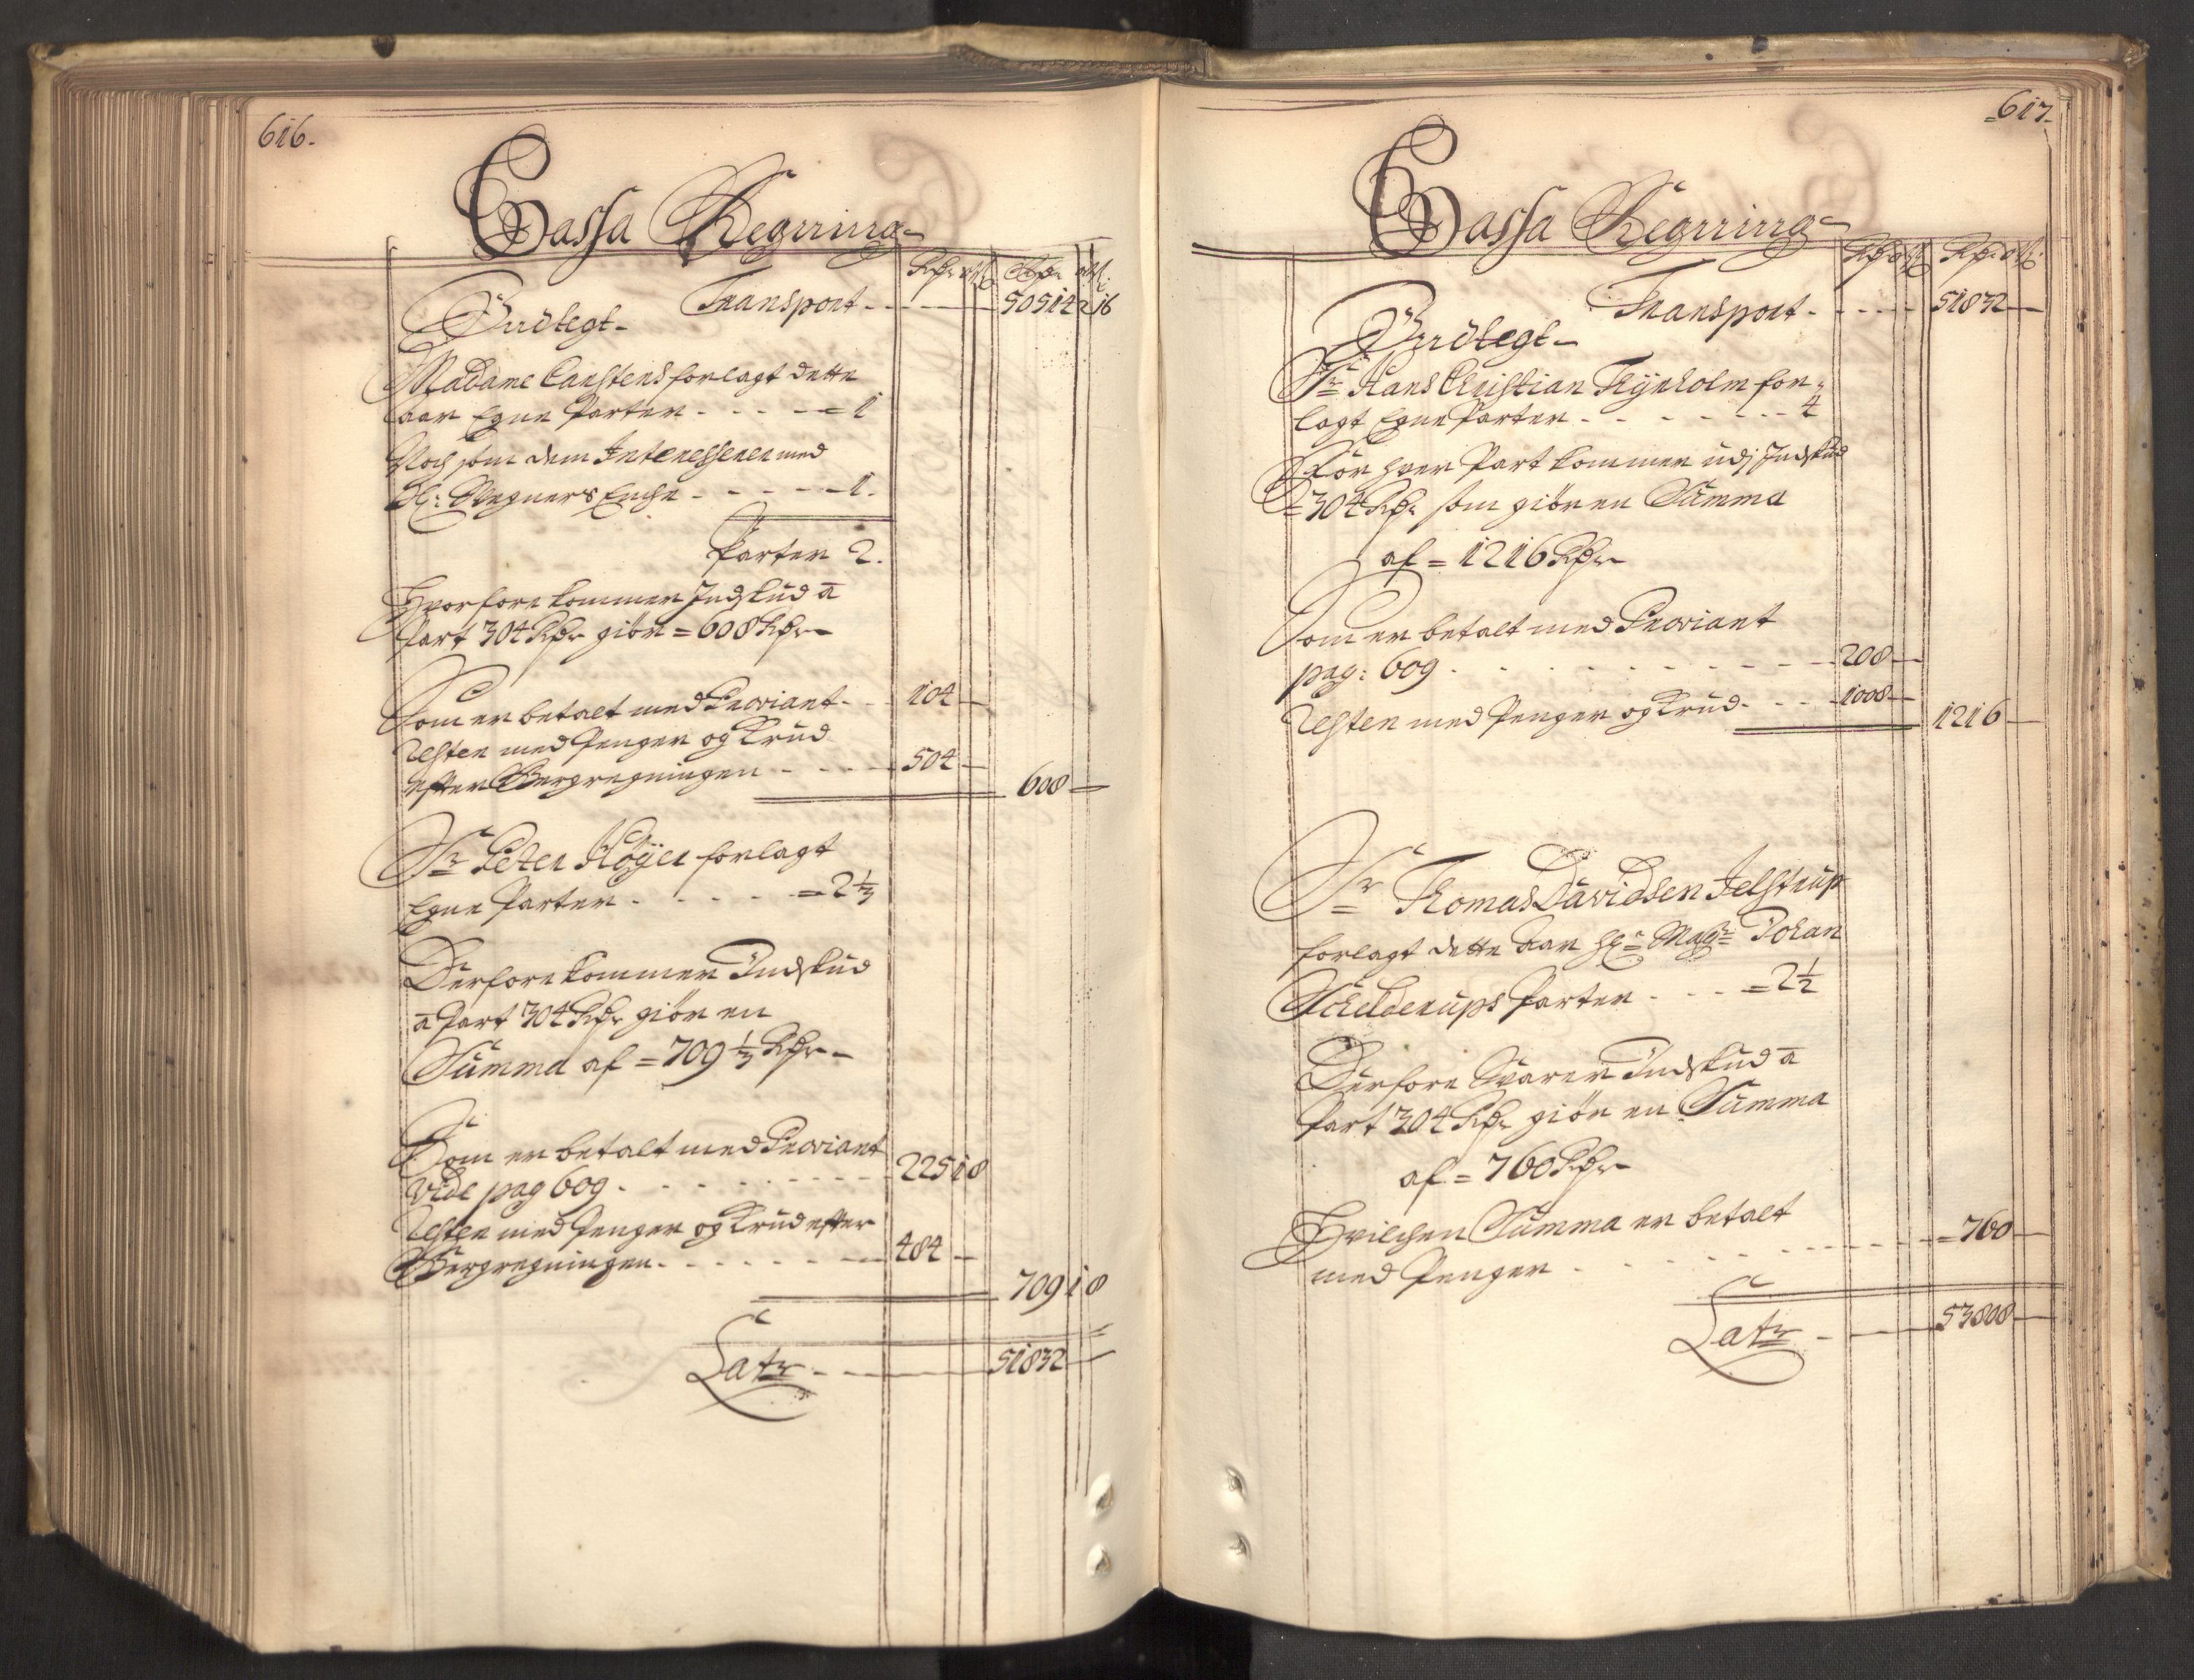 616.
Cassa Regning
Rdr ort ß Rdr ort ß
Transport - - - 50514 2 16
Indlegt
Madame Carstens forlagt dette
aar Egne Parter - - - - = 1
Noch som dem Interesserer med
Sl: Wegners Enche - - - - - 1.
Parter 2.
Hvorfore kommer Indskud a
Part 304 Rdr giör = 608 Rdr
Som er betalt med Proviant - - 104 —
Resten med Penger og Krud
efter Bergregningen - - - - 504 —
608 —
Sr Peter Höyer forlagt
Egne Parter - - - - - = 2 1/3
Derfore kommer Indskud
a Part 304 Rdr giör en
Summa af = 709 1/3 Rdr
Som er betalt med Proviant
vide pag 609 - - - - - - - 225 1 8
Resten med Penger og Krud efter
Bergregningen - - - - - - - 484 —
709 1 8
Latr - - - 51832 —
617.
Cassa Regning
Rdr ort ß Rdr ort ß
Transport - - - - 51832 —
Indlegt
Sr Hans Christian Thyrholm for-
lagt Egne Parter - - - - - - 4
For hver Part kommer udj Indskud
= 304 Rdr som giör en Summa
af = 1216 Rdr
Som er betalt med Proviant
pag: 609 - - - - - - - - 208 —
Resten med Penger og Krud - - - 1008 —
1216 —
Sr Thomas Davidsen Jelstrup
forlagt dette Aar Hr Magr Johan
Schelderups Parter - - - = 2 1/2
Derfore Svarer Indskud a
Part 304 Rdr giör en Summa
af = 760 Rdr
Hvilchen Summa er betalt
med Penger - - - - - - - = 760 —
Latr - - - 53808 —